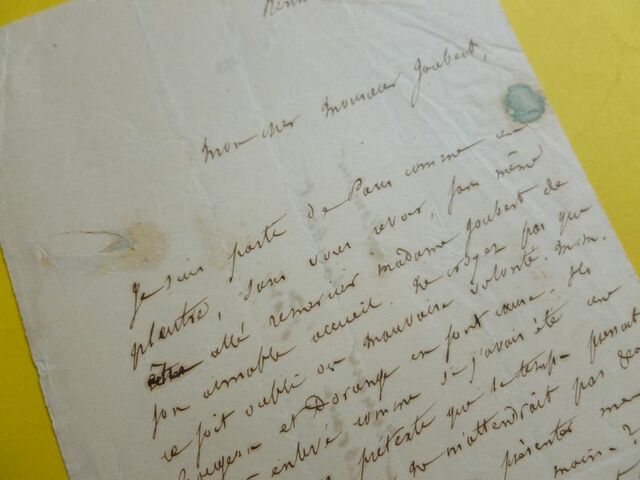 Renn
Mon cher Monsieur Joubert,
Je suis parti de Paris comme un
pleutre, sans vous revoir, sans même
être allé remercier madame Joubert de
son aimable accueil. Ne croyez pas que
ce soit oubli ou mauvaise volonté. M.M.
et Dorange en sont cause. Ils
enlevé comme si j'avais été une
prétexte que le temps pressait
ne m'attendrait pas de
présenter me
main